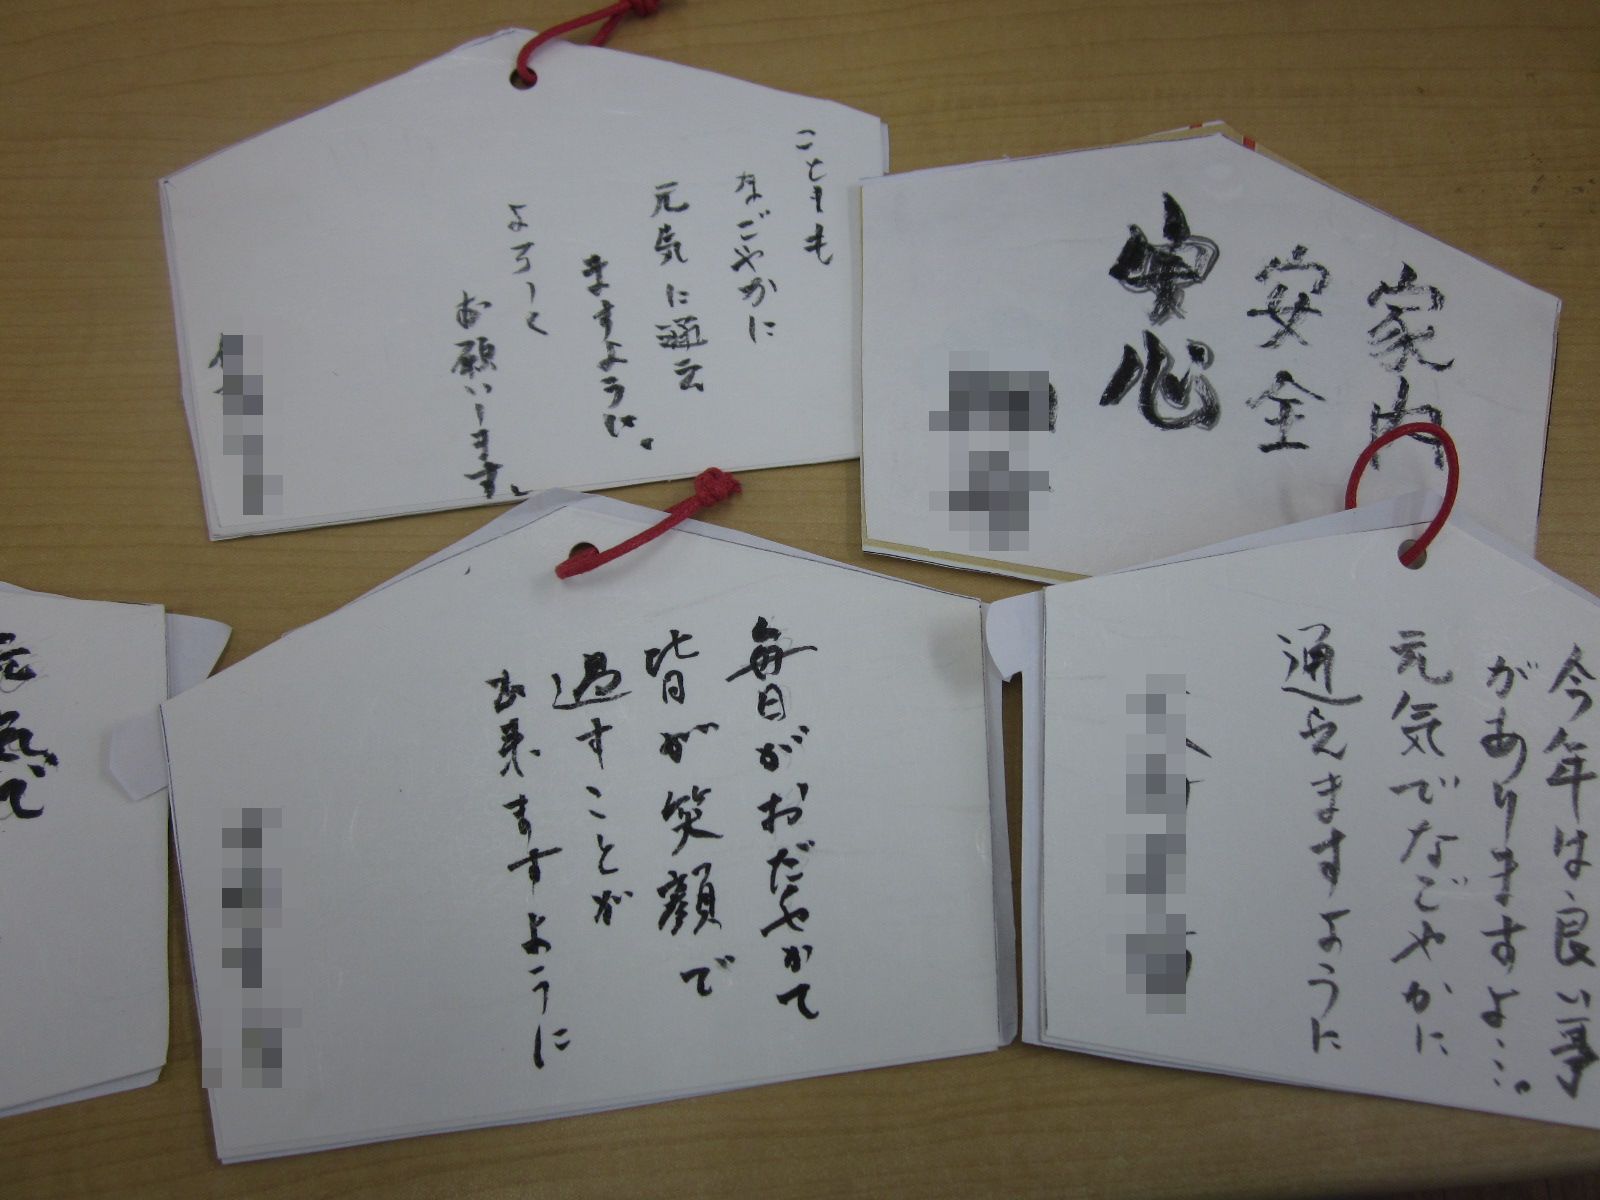 ことしも
なごやかに
元気に通え
ますように。
よろしく
お願いします。
家内
安全
安心
毎日がおだやかで
皆が笑顔で
過すことが
出来ますように
今年は良い事
がありますよ…。
元気でなごやかに
通えますように
元気で